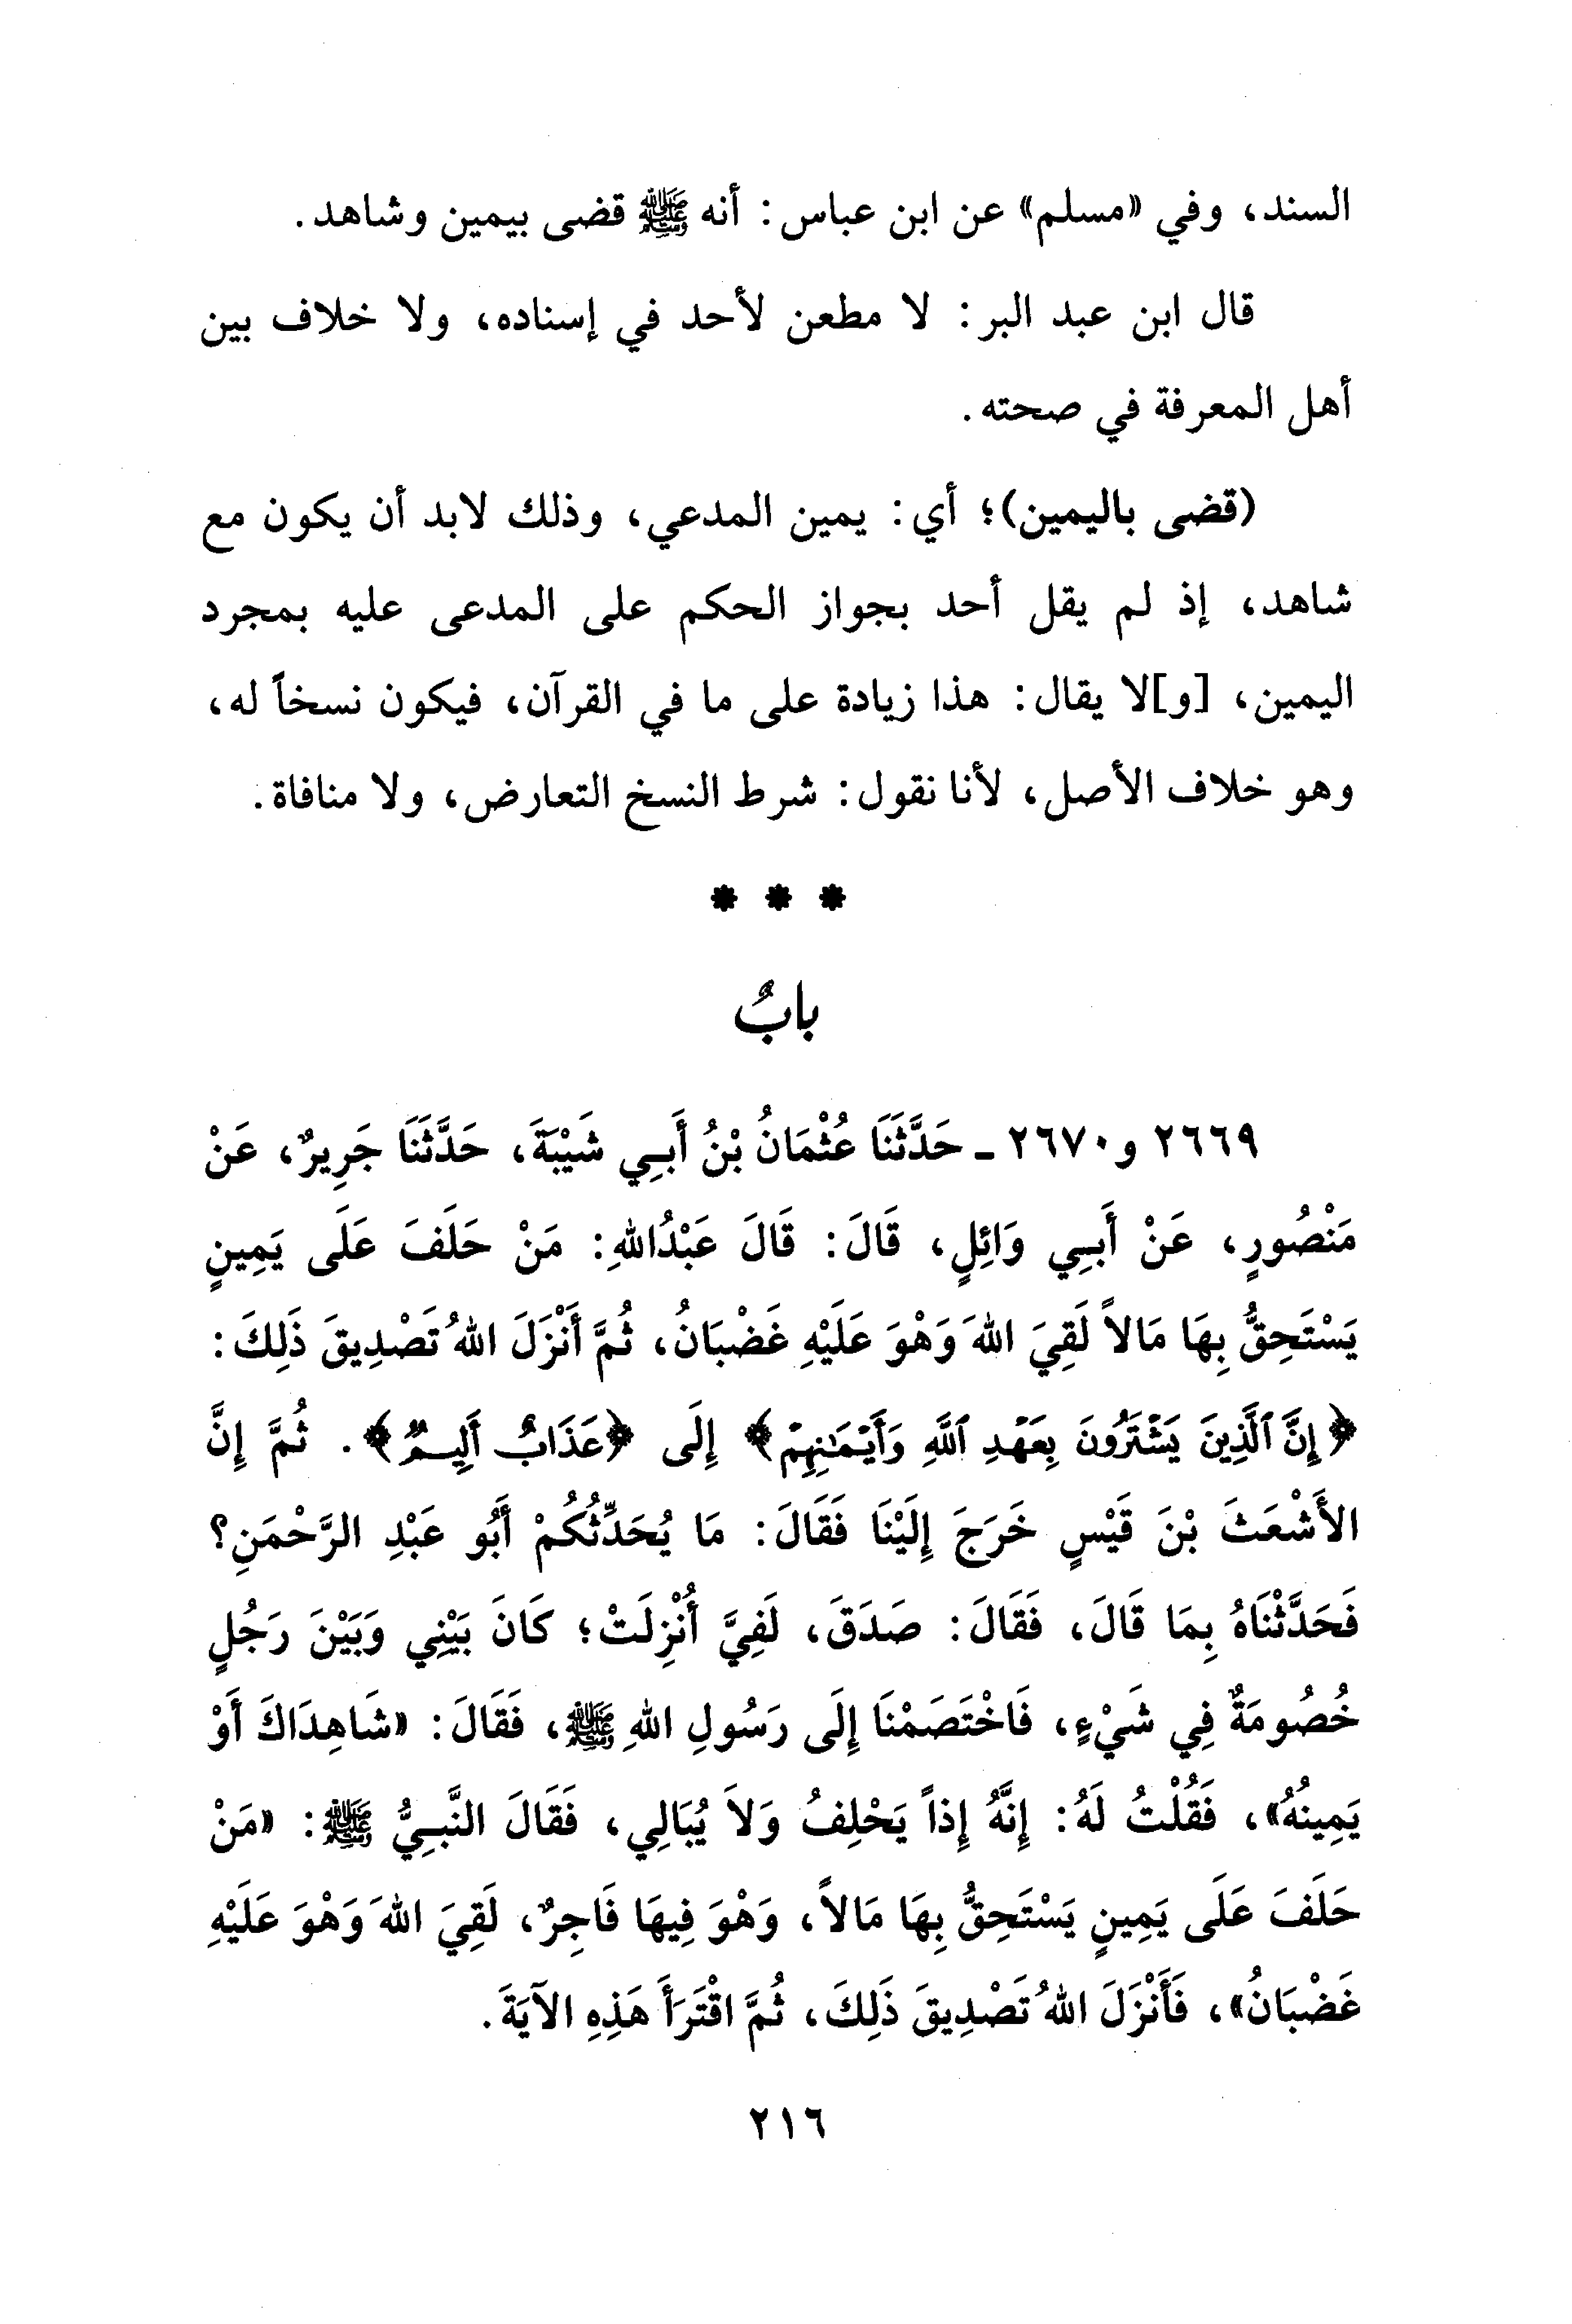 السند، وفي «مسلم» عن ابن عباس: أنه ﷺ قضى بيمين وشاهد.
قال ابن عبد البر: لا مطعن لأحد في إسناده، ولا خلاف بين
أهل المعرفة في صحته.
(قضى باليمين)؛ أي: يمين المدعي، وذلك لابد أن يكون مع
شاهد، إذ لم يقل أحد بجواز الحكم على المدعى عليه بمجرد
اليمين، [و]لا يقال: هذا زيادة على ما في القرآن، فيكون نسخاً له،
وهو خلاف الأصل، لأنا نقول: شرط النسخ التعارض، ولا منافاة.
* * *
بابٌ
٢٦٦٩ و٢٦٧٠ ـ حَدَّثَنَا عُثْمَانُ بْنُ أَبِي شَيْبَةَ، حَدَّثَنَا جَرِيرٌ، عَنْ
مَنْصُورٍ، عَنْ أَبِي وَائِلٍ، قَالَ: قَالَ عَبْدُاللهِ: مَنْ حَلَفَ عَلَى يَمِينٍ
يَسْتَحِقُّ بِهَا مَالاً لَقِيَ اللهَ وَهْوَ عَلَيْهِ غَضْبَانُ، ثُمَّ أَنْزَلَ اللهُ تَصْدِيقَ ذَلِكَ:
﴿إِنَّ ٱلَّذِينَ يَشْتَرُونَ بِعَهْدِ ٱللَّهِ وَأَيْمَٰنِهِمْ﴾ إِلَى ﴿عَذَابٌ أَلِيمٌ﴾. ثُمَّ إِنَّ
الأَشْعَثَ بْنَ قَيْسٍ خَرَجَ إِلَيْنَا فَقَالَ: مَا يُحَدِّثُكُمْ أَبُو عَبْدِ الرَّحْمَنِ؟
فَحَدَّثْنَاهُ بِمَا قَالَ، فَقَالَ: صَدَقَ، لَفِيَّ أُنْزِلَتْ؛ كَانَ بَيْنِي وَبَيْنَ رَجُلٍ
خُصُومَةٌ فِي شَيْءٍ، فَاخْتَصَمْنَا إِلَى رَسُولِ اللهِ ﷺ، فَقَالَ: «شَاهِدَاكَ أَوْ
يَمِينُهُ»، فَقُلْتُ لَهُ: إِنَّهُ إِذاً يَحْلِفُ وَلاَ يُبَالِي، فَقَالَ النَّبِيُّ ﷺ: «مَنْ
حَلَفَ عَلَى يَمِينٍ يَسْتَحِقُّ بِهَا مَالاً، وَهْوَ فِيهَا فَاجِرٌ، لَقِيَ اللهَ وَهْوَ عَلَيْهِ
غَضْبَانُ»، فَأَنْزَلَ اللهُ تَصْدِيقَ ذَلِكَ، ثُمَّ اقْتَرَأَ هَذِهِ الآيَةَ.
٢١٦